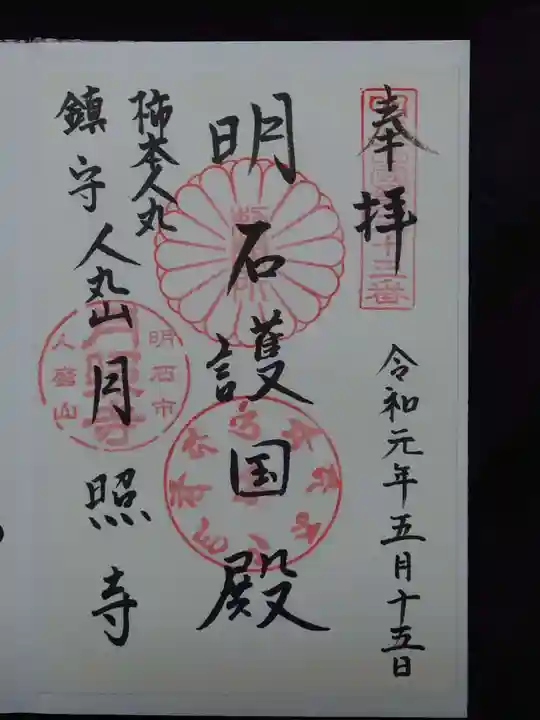 奉拝
令和元年五月十五日
明石護国殿
柿本人丸
鎮守
人丸山月照寺
明石市
人麿山
月照寺